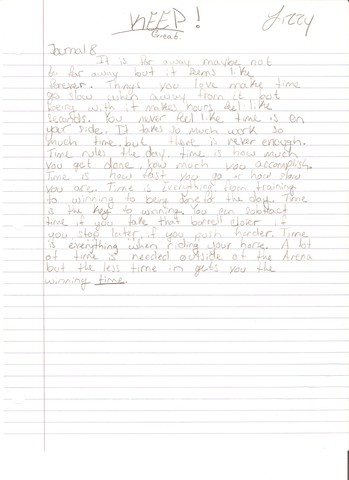 KEEP!
Great.
Lizzy
Journal 8
It is far away maybe not
to far away but it seems like
forever. Things you love make time
go slow when away from it but
being with it makes hours feel like
seconds. You never feel like time is on
your side. It takes so much work so
much time, but there is never enough.
Time rules the day, time is how much
you get done, how much you accomplish.
Time is how fast you go or how slow
you are. Time is Everything from training
to winning to being done for the day. Time
is the key to winning. You can subtract
time if you take that barrell closer if
you stop later, if you push harder. Time
is everything when riding your horse. A lot
of time is needed outside of the Arena
but the less time in gets you the
winning time.